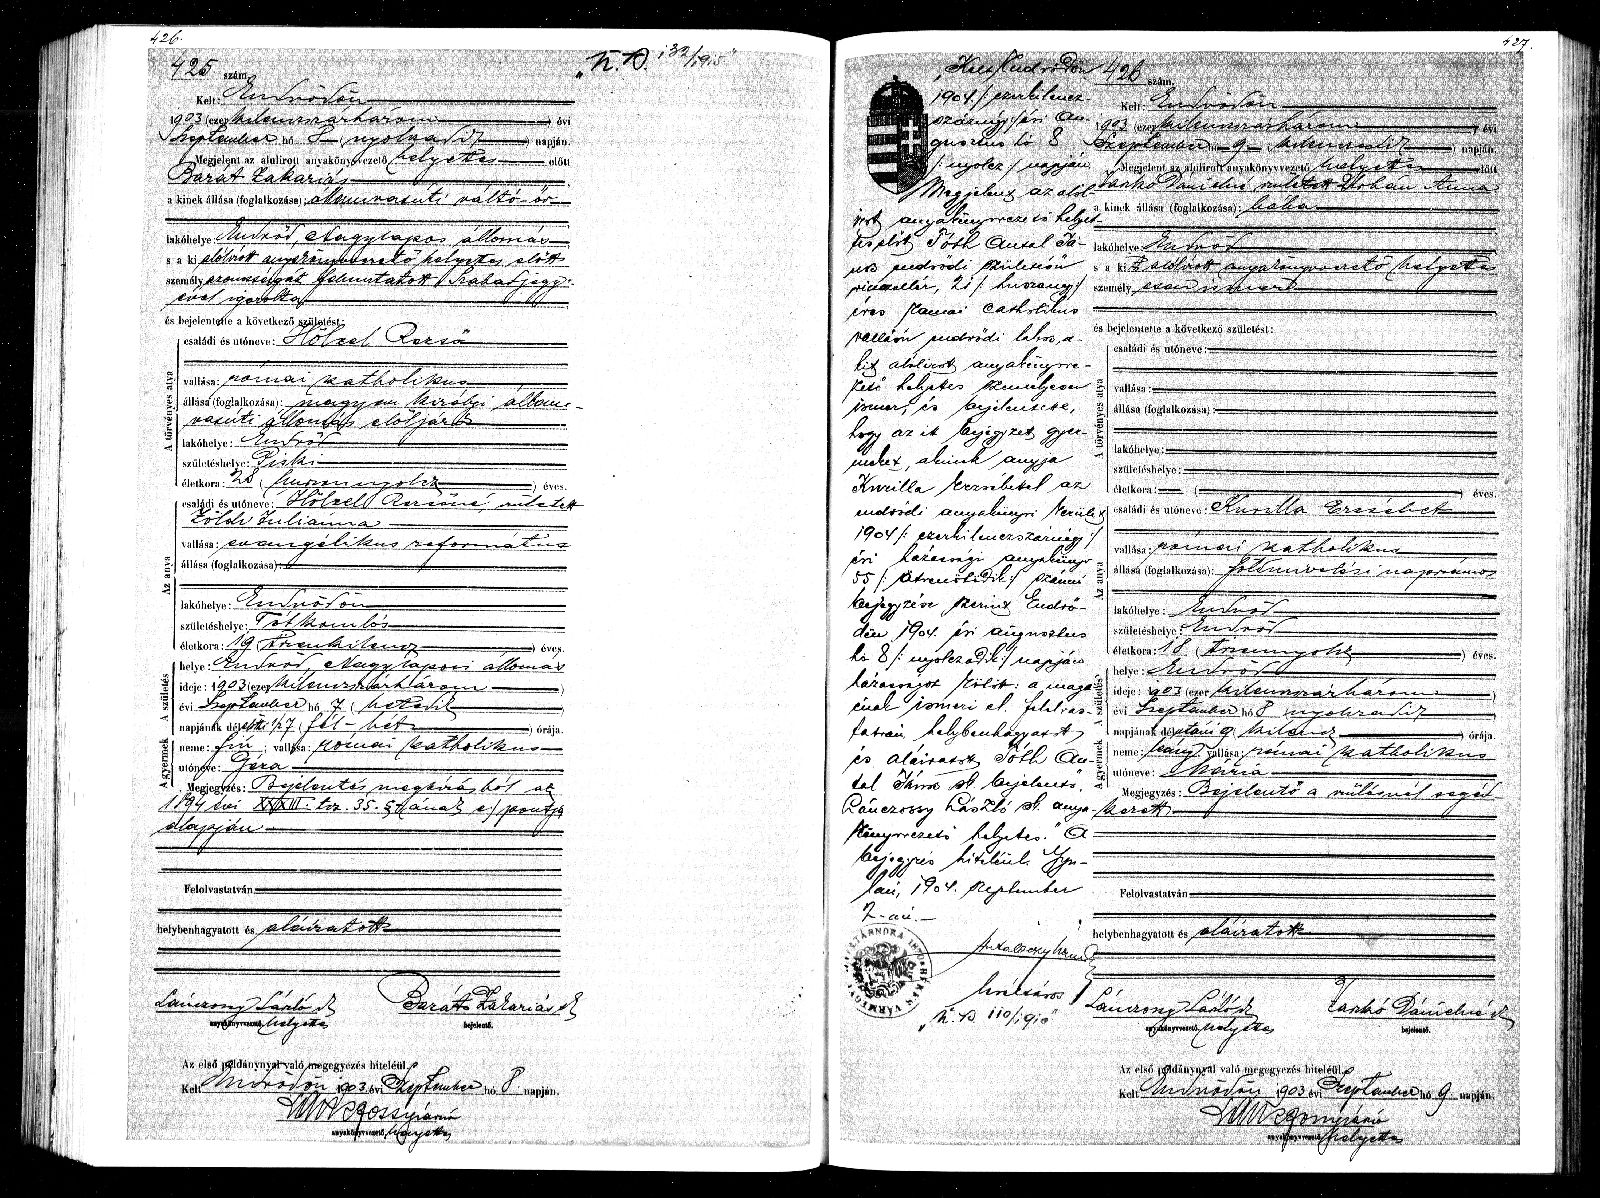 426.
425 szám.
"U. B. 132/1915"
Kelt: Endrődön
1903 (ezer kilenczszázhárom) évi
Szeptember hó 8 (nyolczadik) napján.
Megjelent az alulirott anyakönyvvezető helyettes előtt
Barát Zakariás
a kinek állása (foglalkozása): államvasúti váltó őr
lakóhelye: Endrőd, Nagylapos állomás
s a ki alólírott anyakönyvvezető helyettes előtt
személyazonosságát felmutatott szabadjegy-
ével igazolta
és bejelentette a következő születést:
A törvényes atya
családi és utóneve: Hölzel Rezső
vallása: római katholikus
állása (foglalkozása): magyar királyi állam-
vasúti állomás elöljáró
lakóhelye: Endrőd
születéshelye: Piski
életkora: 28 (huszonnyolcz) éves.
Az anya
családi és utóneve: Hölzel Rezsőné, született
Zöldi Julianna
vallása: evangélikus református
állása (foglalkozása):
lakóhelye: Endrődön
születéshelye: Tótkomlós
életkora: 19 (tizenkilencz) éves.
A születés
helye: Endrőd, Nagylaposi állomás
ideje: 1903 (ezer kilenczszázhárom)
évi Szeptember hó 7 (hetedik)
napjának délelőtti 1/2 7 (fél-hét) órája.
A gyermek
neme: fiú; vallása: római katholikus
utóneve: Géza
Megjegyzés: Bejelentés megbízásból az
1894 évi XXXIII. tcz. 35. §-ának e) pontja
alapján
Felolvastatván
helybenhagyatott és aláiratott
Lánczossy László sk Barát Zakariás sk
anyakönyvvezető helyettes bejelentő.
Az első példánynyal való megegyezés hiteléül
Kelt Endrődön 1903 évi Szeptember hó 8 napján.
anyakönyvvezető helyettes
427.
Kelt Endrődön
1904 /: ezerkilencz-
száznégy:/ évi Au-
gusztus hó 8
/: nyolcz:/ napján
Megjelent az alól-
irott anyakönyvvezető helyet-
tes előtt Tóth Antal Já-
nos endrődi születésű
21 /: huszonegy:/
éves Római catholikus
vallású endrődi lakos, a-
kit alólirott anyakönyvve-
zető helyettes személyesen
ismer, és bejelentette,
hogy az itt bejegyzett gyer-
meket, akinek anyja
Kurilla Erzsébettel az
endrődi anyakönyvi kerület
1904 /: ezerkilenczszáznégy:/
évi házassági anyakönyv
55 /: ötvenötödik:/ számú
bejegyzése szerint Endrő-
dön 1904. évi augusztus
hó 8 /: nyolczadik:/ napján
házasságot kötött: a magá-
énak ismeri el. Felolvas-
tatván helybenhagyatott
és aláiratott Tóth An-
tal János sk bejelentő,
Lánczossy László sk anya-
könyvvezető helyettes." A
bejegyzés hiteléül. Gyu-
lán, 1904. szeptember
2-án.
"U. B. 110/1910"
426 szám.
Kelt: Endrődön
1903 (ezer kilenczszázhárom) évi
Szeptember hó 9 kilenczedik napján.
Megjelent az alulirott anyakönyvvezető helyettes előtt
Jankó Dánielné született Uhrin Anna
a kinek állása (foglalkozása): bába
lakóhelye: Endrőd
s a ki t alólírott anyakönyvvezető helyettes
személyesen ismer
és bejelentette a következő születést:
A törvényes atya
családi és utóneve:
vallása:
állása (foglalkozása):
lakóhelye:
születéshelye:
életkora: ( ) éves.
Az anya
családi és utóneve: Kurilla Erzsébet
vallása: római katholikus
állása (foglalkozása): földmivelési napszámos
lakóhelye: Endrőd
születéshelye: Endrőd
életkora: 18 (tizennyolcz) éves.
A születés
helye: Endrőd
ideje: 1903 (ezer kilenczszázhárom)
évi Szeptember hó 8 nyolczadik
napjának délutáni 9 kilencz órája.
A gyermek
neme: leány vallása: római katholikus
utóneve: Mária
Megjegyzés: Bejelentő a szülésnél segéd-
kezett
Felolvastatván
helybenhagyatott és aláiratott
Lánczossy László sk Jankó Dánielné sk
anyakönyvvezető helyettes bejelentő.
Az első példánynyal való megegyezés hiteléül
Kelt Endrődön 1903 évi Szeptember hó 9 napján.
anyakönyvvezető helyettes